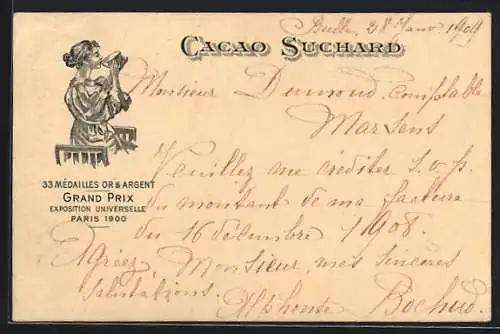 Bulle, 28 Janv. 1909
CACAO SUCHARD
Monsieur Demond, comptable
Marsens
Veuillez me créditer s.v.p.
du montant de ma facture
du 16 décembre 1908.
Agréez Monsieur, mes sincères
salutations.
Alphonse Bochud.
33 MÉDAILLES OR & ARGENT
GRAND PRIX
EXPOSITION UNIVERSELLE
PARIS 1900